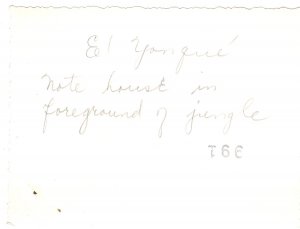 El Yonqué
Note house in
foreground of jungle